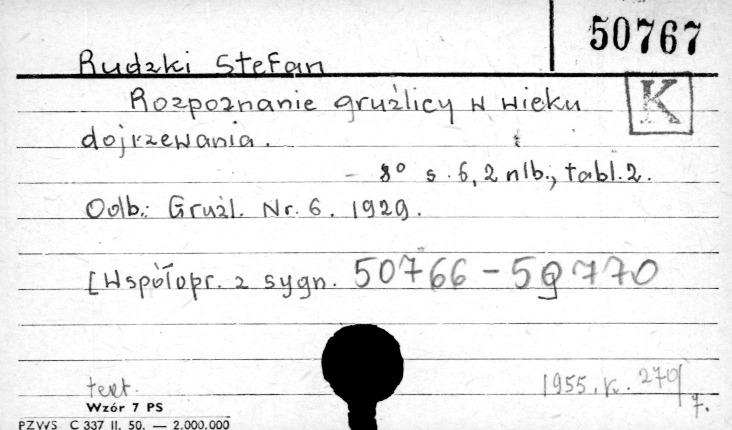 50767
Rudzki Stefan
Rozpoznanie gruźlicy w wieku
K
dojrzewania.
- 8° s. 6, 2 nlb., tabl. 2.
Odb.: Gruźl. Nr. 6. 1929.
[Współopr. z sygn. 50766 - 50770
1955. K. 270/7.
Wzór 7 PS
PZWS C 337 II. 50. — 2.000.000